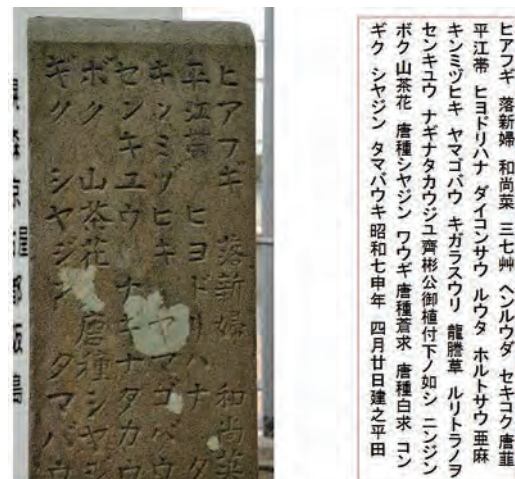 ヒアフギ 落新婦 和尚菜 三七艸 ヘンルウダ セキコク 唐韮
平江帯 ヒヨドリハナ ダイコンサウ ルウタ ホルトサウ 亜麻
キンミヅヒキ ヤマゴバウ キガラスウリ 龍謄草 ルリトラノヲ
センキユウ ナギナタカウジユ 齊彬公御植付下ノ如シ ニンジン
ボク 山茶花 唐種シヤジン ワウギ 唐種蒼求 唐種白求 コン
ギク シヤジン タマバウキ 昭和七申年 四月廿日建之平田
ヒアフギ 落新婦 和尚菜
平江帯 ヒヨドリハナ ダ
キンミヅヒキ ヤマゴバウ
センキユウ ナギナタカウ
ボク 山茶花 唐種シヤジ
ギク シヤジン タマバウ